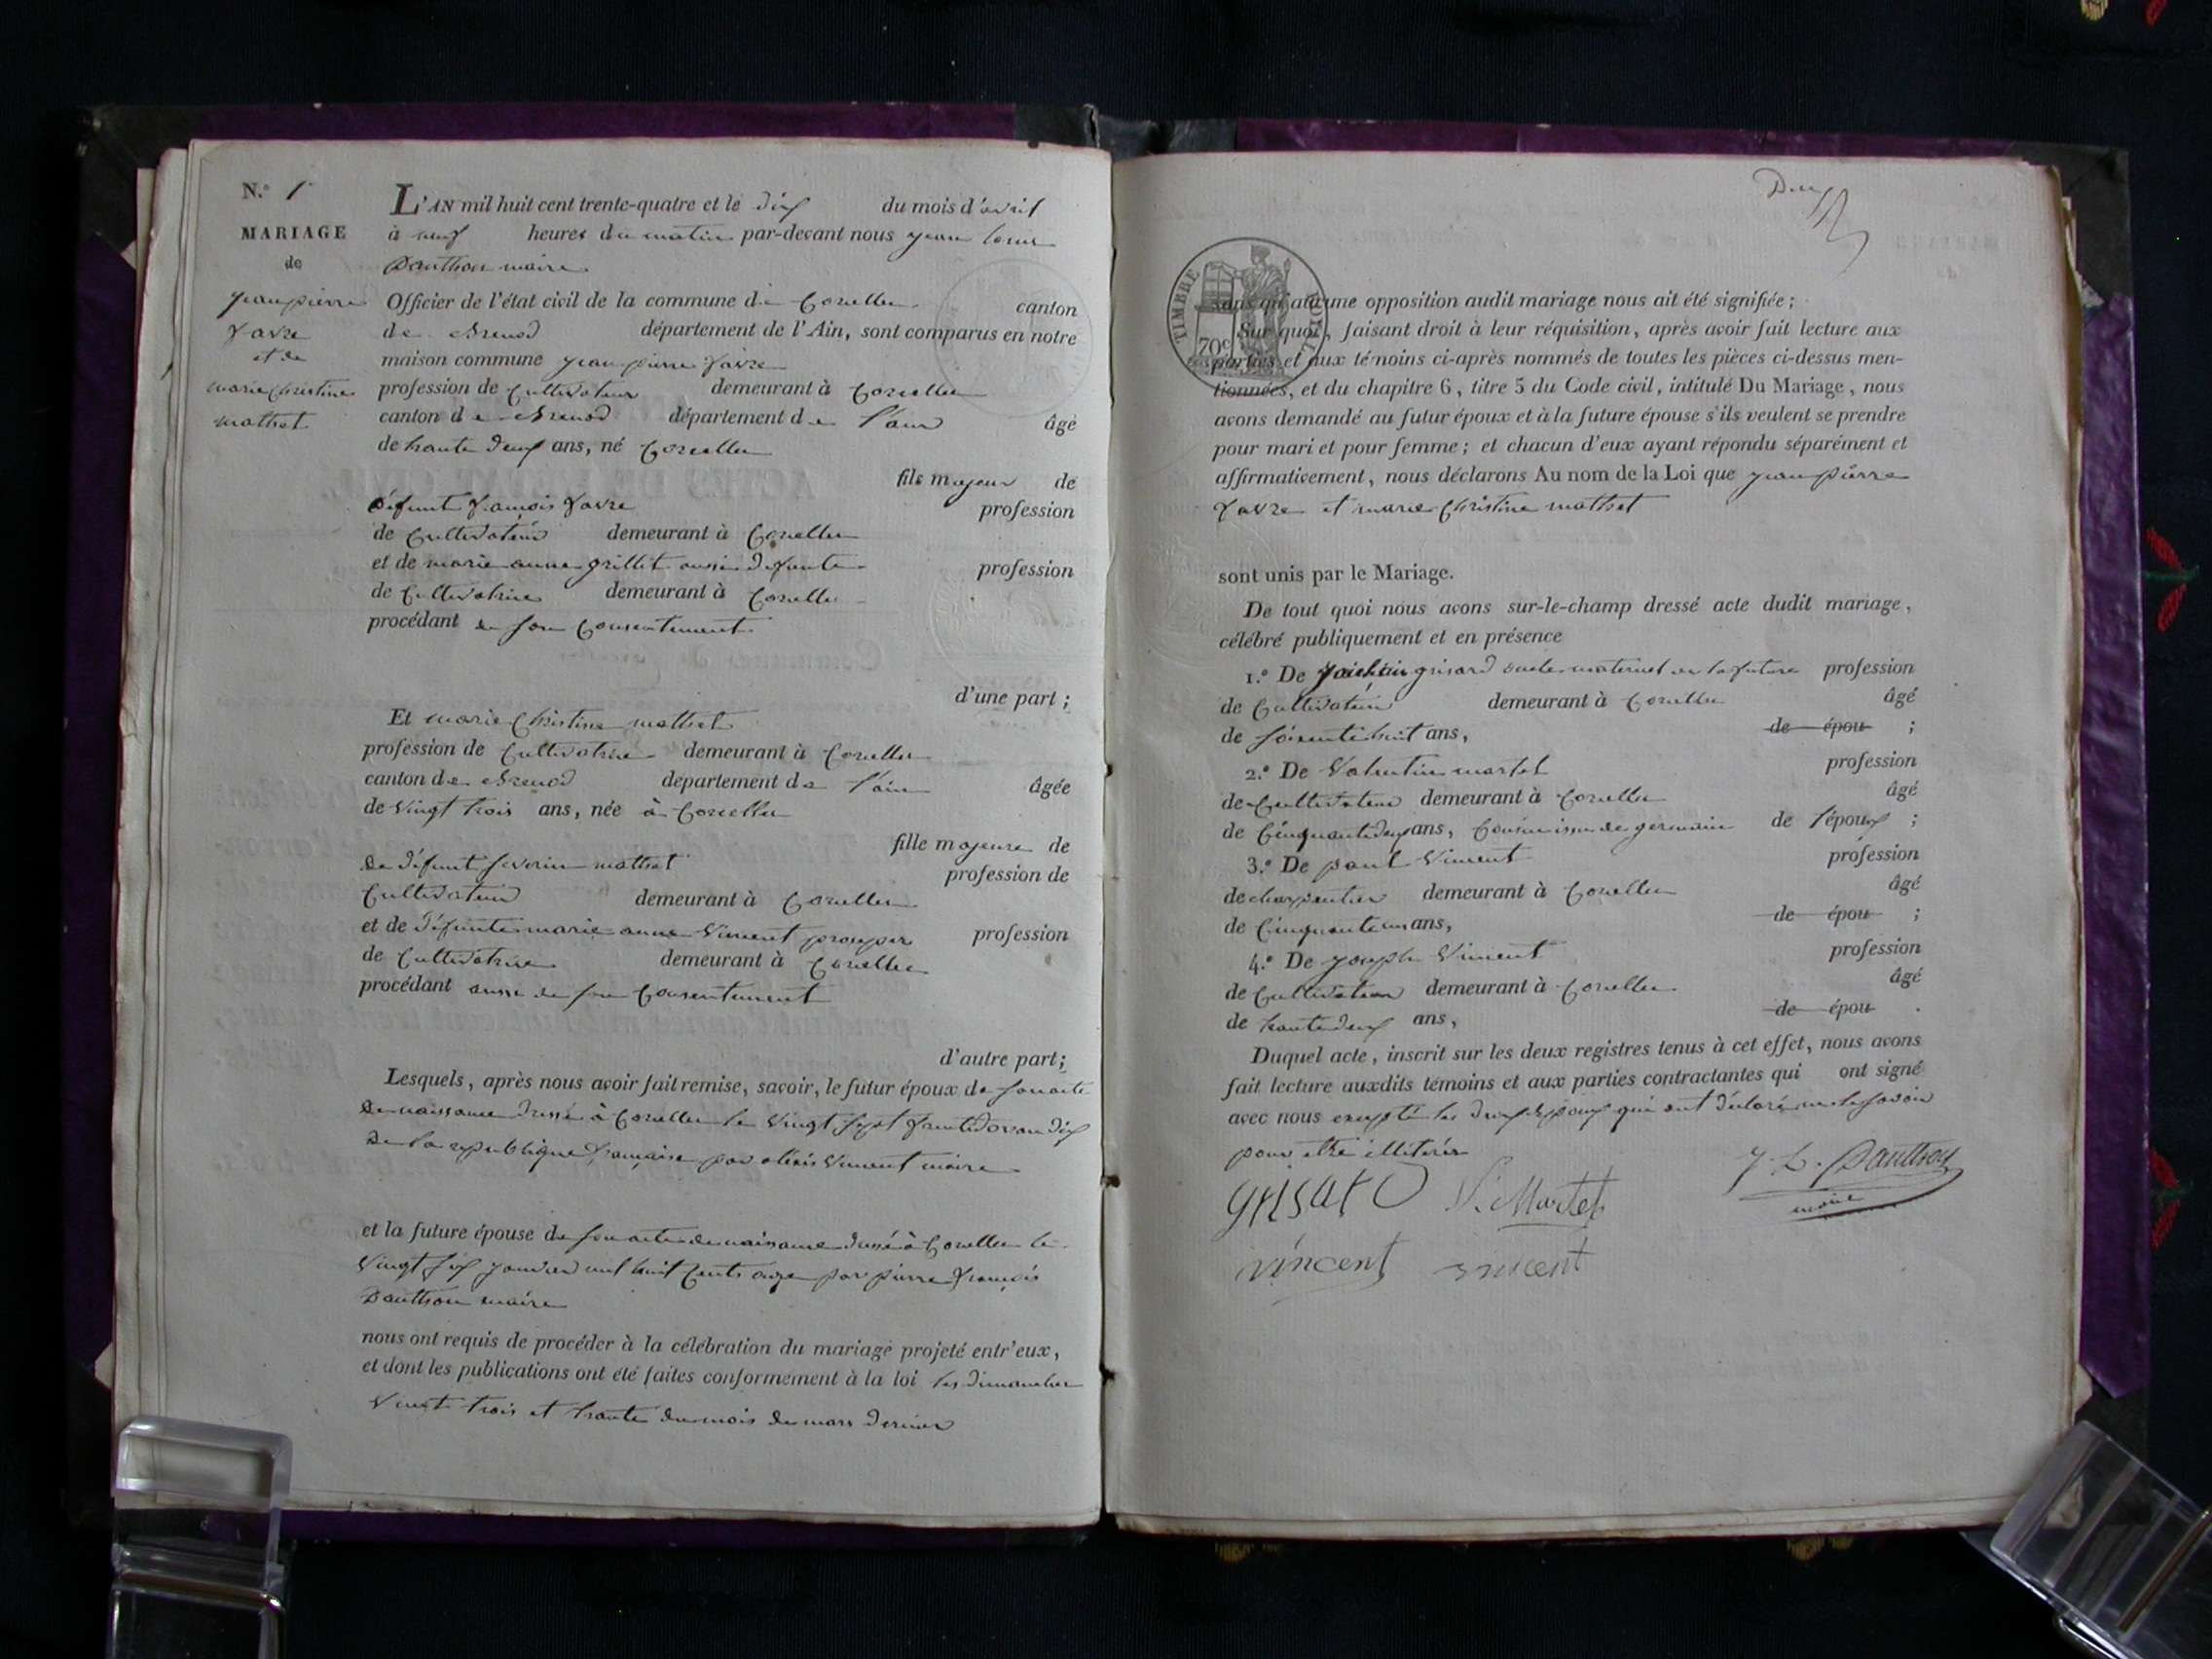 N.º 1
MARIAGE
de
jean pierre
favre
et de
marie christine
mathet
L'AN mil huit cent trente-quatre et le dix du mois d'avril
à neuf heures du matin par-devant nous jean louis
Panthon maire
Officier de l'état civil de la commune de Corcelles canton
de Brenod département de l'Ain, sont comparus en notre
maison commune jean pierre favre
profession de Cultivateur demeurant à Corcelles
canton de Brenod département de l'ain âgé
de trente deux ans, né Corcelles
fils majeur de
défunt françois favre profession
de Cultivateur demeurant à Corcelles
et de marie anne grillet aussi défunte profession
de Cultivatrice demeurant à Corcelles
procédant de son Consentement
d'une part ;
Et marie Christine mathet
profession de Cultivatrice demeurant à Corcelles
canton de Brenod département de l'ain âgée
de Vingt trois ans, née à Corcelles
fille majeure de
de défunt severin mathet profession de
Cultivateur demeurant à Corcelles
et de défunte marie anne Vincent profession
de Cultivatrice demeurant à Corcelles
procédant aussi de son Consentement
d'autre part ;
Lesquels, après nous avoir fait remise, savoir, le futur époux de son acte
de naissance dressé à Corcelles le Vingt sept an dix
de la republique française par Vincent maire
et la future épouse de son acte de naissance dressé à Corcelles le
Vingt six janvier mil huit Cents onze par pierre françois
Panthon maire
nous ont requis de procéder à la célébration du mariage projeté entr'eux,
et dont les publications ont été faites conformément à la loi les dimanches
Vingt trois et trente du mois de mars dernier
Deux
TIMBRE ROYAL
70c
sans qu'aucune opposition audit mariage nous ait été signifiée ;
Sur quoi, faisant droit à leur réquisition, après avoir fait lecture aux
parties et aux témoins ci-après nommés de toutes les pièces ci-dessus men-
tionnées, et du chapitre 6, titre 5 du Code civil, intitulé Du Mariage, nous
avons demandé au futur époux et à la future épouse s'ils veulent se prendre
pour mari et pour femme ; et chacun d'eux ayant répondu séparément et
affirmativement, nous déclarons Au nom de la Loi que jean pierre
favre et marie Christine mathet
sont unis par le Mariage.
De tout quoi nous avons sur-le-champ dressé acte dudit mariage,
célébré publiquement et en présence
1.º De grisard oncle maternel de la future profession
de Cultivateur demeurant à Corcelles âgé
de soixante huit ans, de épou ;
2.º De Valentin martel profession
de Cultivateur demeurant à Corcelles âgé
de Cinquante deux ans, Cousin issu de germain de l'époux ;
3.º De paul Vincent profession
de charpentier demeurant à Corcelles âgé
de Cinquante un ans, de épou ;
4.º De joseph Vincent profession
de Cultivateur demeurant à Corcelles âgé
de trente deux ans, de épou .
Duquel acte, inscrit sur les deux registres tenus à cet effet, nous avons
fait lecture auxdits témoins et aux parties contractantes qui ont signé
avec nous excepté les deux époux qui ont déclaré ne le savoir
pour etre illitérés
grisard V. Martel J. L. Panthon
maire
vincent vincent